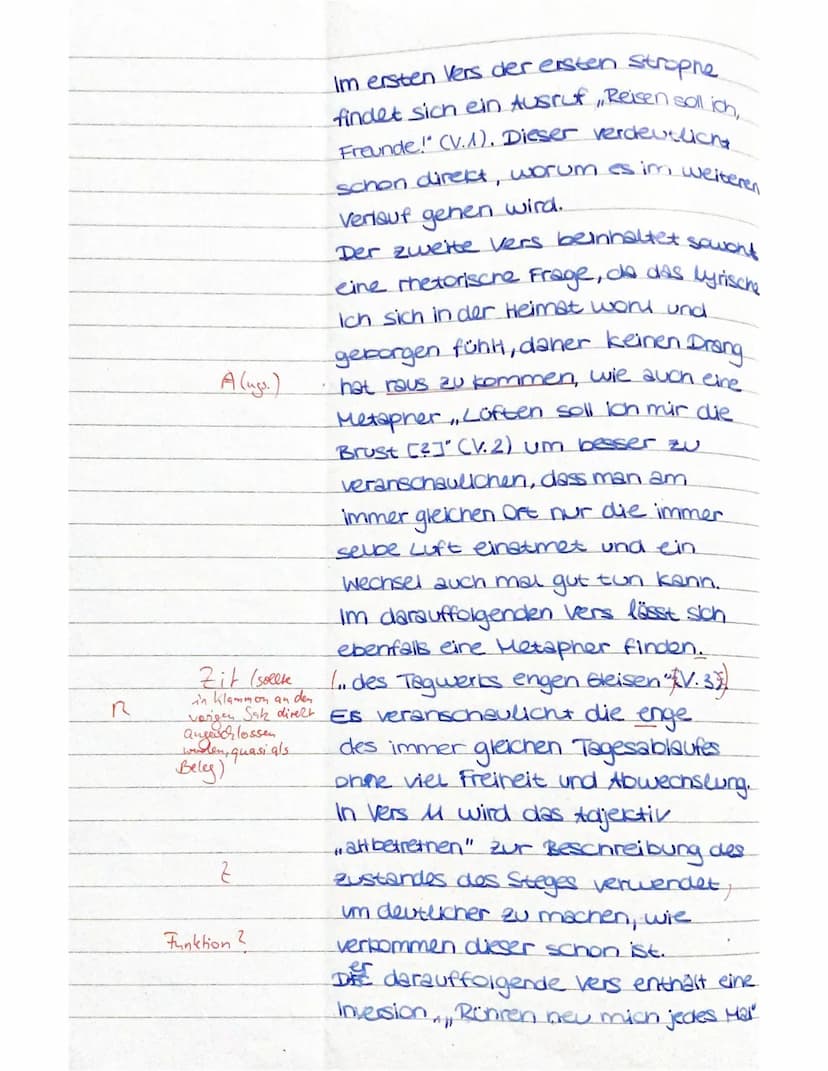 Im ersten Vers der ersten Strophe
findet sich ein Ausruf „Reisen soll ich,
Freunde!" (V.1). Dieser verdeutlicht
schon direkt, worum es im weiteren
Verlauf gehen wird.
Der zweite Vers beinhaltet sowohl
eine rhetorische Frage, da das lyrische
Ich sich in der Heimat wohl und
geborgen fühlt, daher keinen Drang
A (ugs.)
hat raus zu kommen, wie auch eine
Metapher „Lüften soll ich mir die
Brust [?]" (V.2) um besser zu
veranschaulichen, dass man am
immer gleichen Ort nur die immer
selbe Luft einatmet und ein
Wechsel auch mal gut tun kann.
Im darauffolgenden Vers lässt sich
ebenfalls eine Metapher finden.
Zit (sollte
in Klammern an den
vorigen Satz direkt
angeschlossen
werden, quasi als
Beleg)
(„des Tagwerks engen Gleisen" (V.3))
R
Es veranschaulicht die enge
des immer gleichen Tagesablaufes
ohne viel Freiheit und Abwechslung.
In Vers 4 wird das Adjektiv
„altbetretnen" zur Beschreibung des
Z
Zustandes des Steges verwendet,
um deutlicher zu machen, wie
Funktion?
verkommen dieser schon ist.
Der darauffolgende Vers enthält eine
Inversion, „Rühren neu mich jedes Mal"